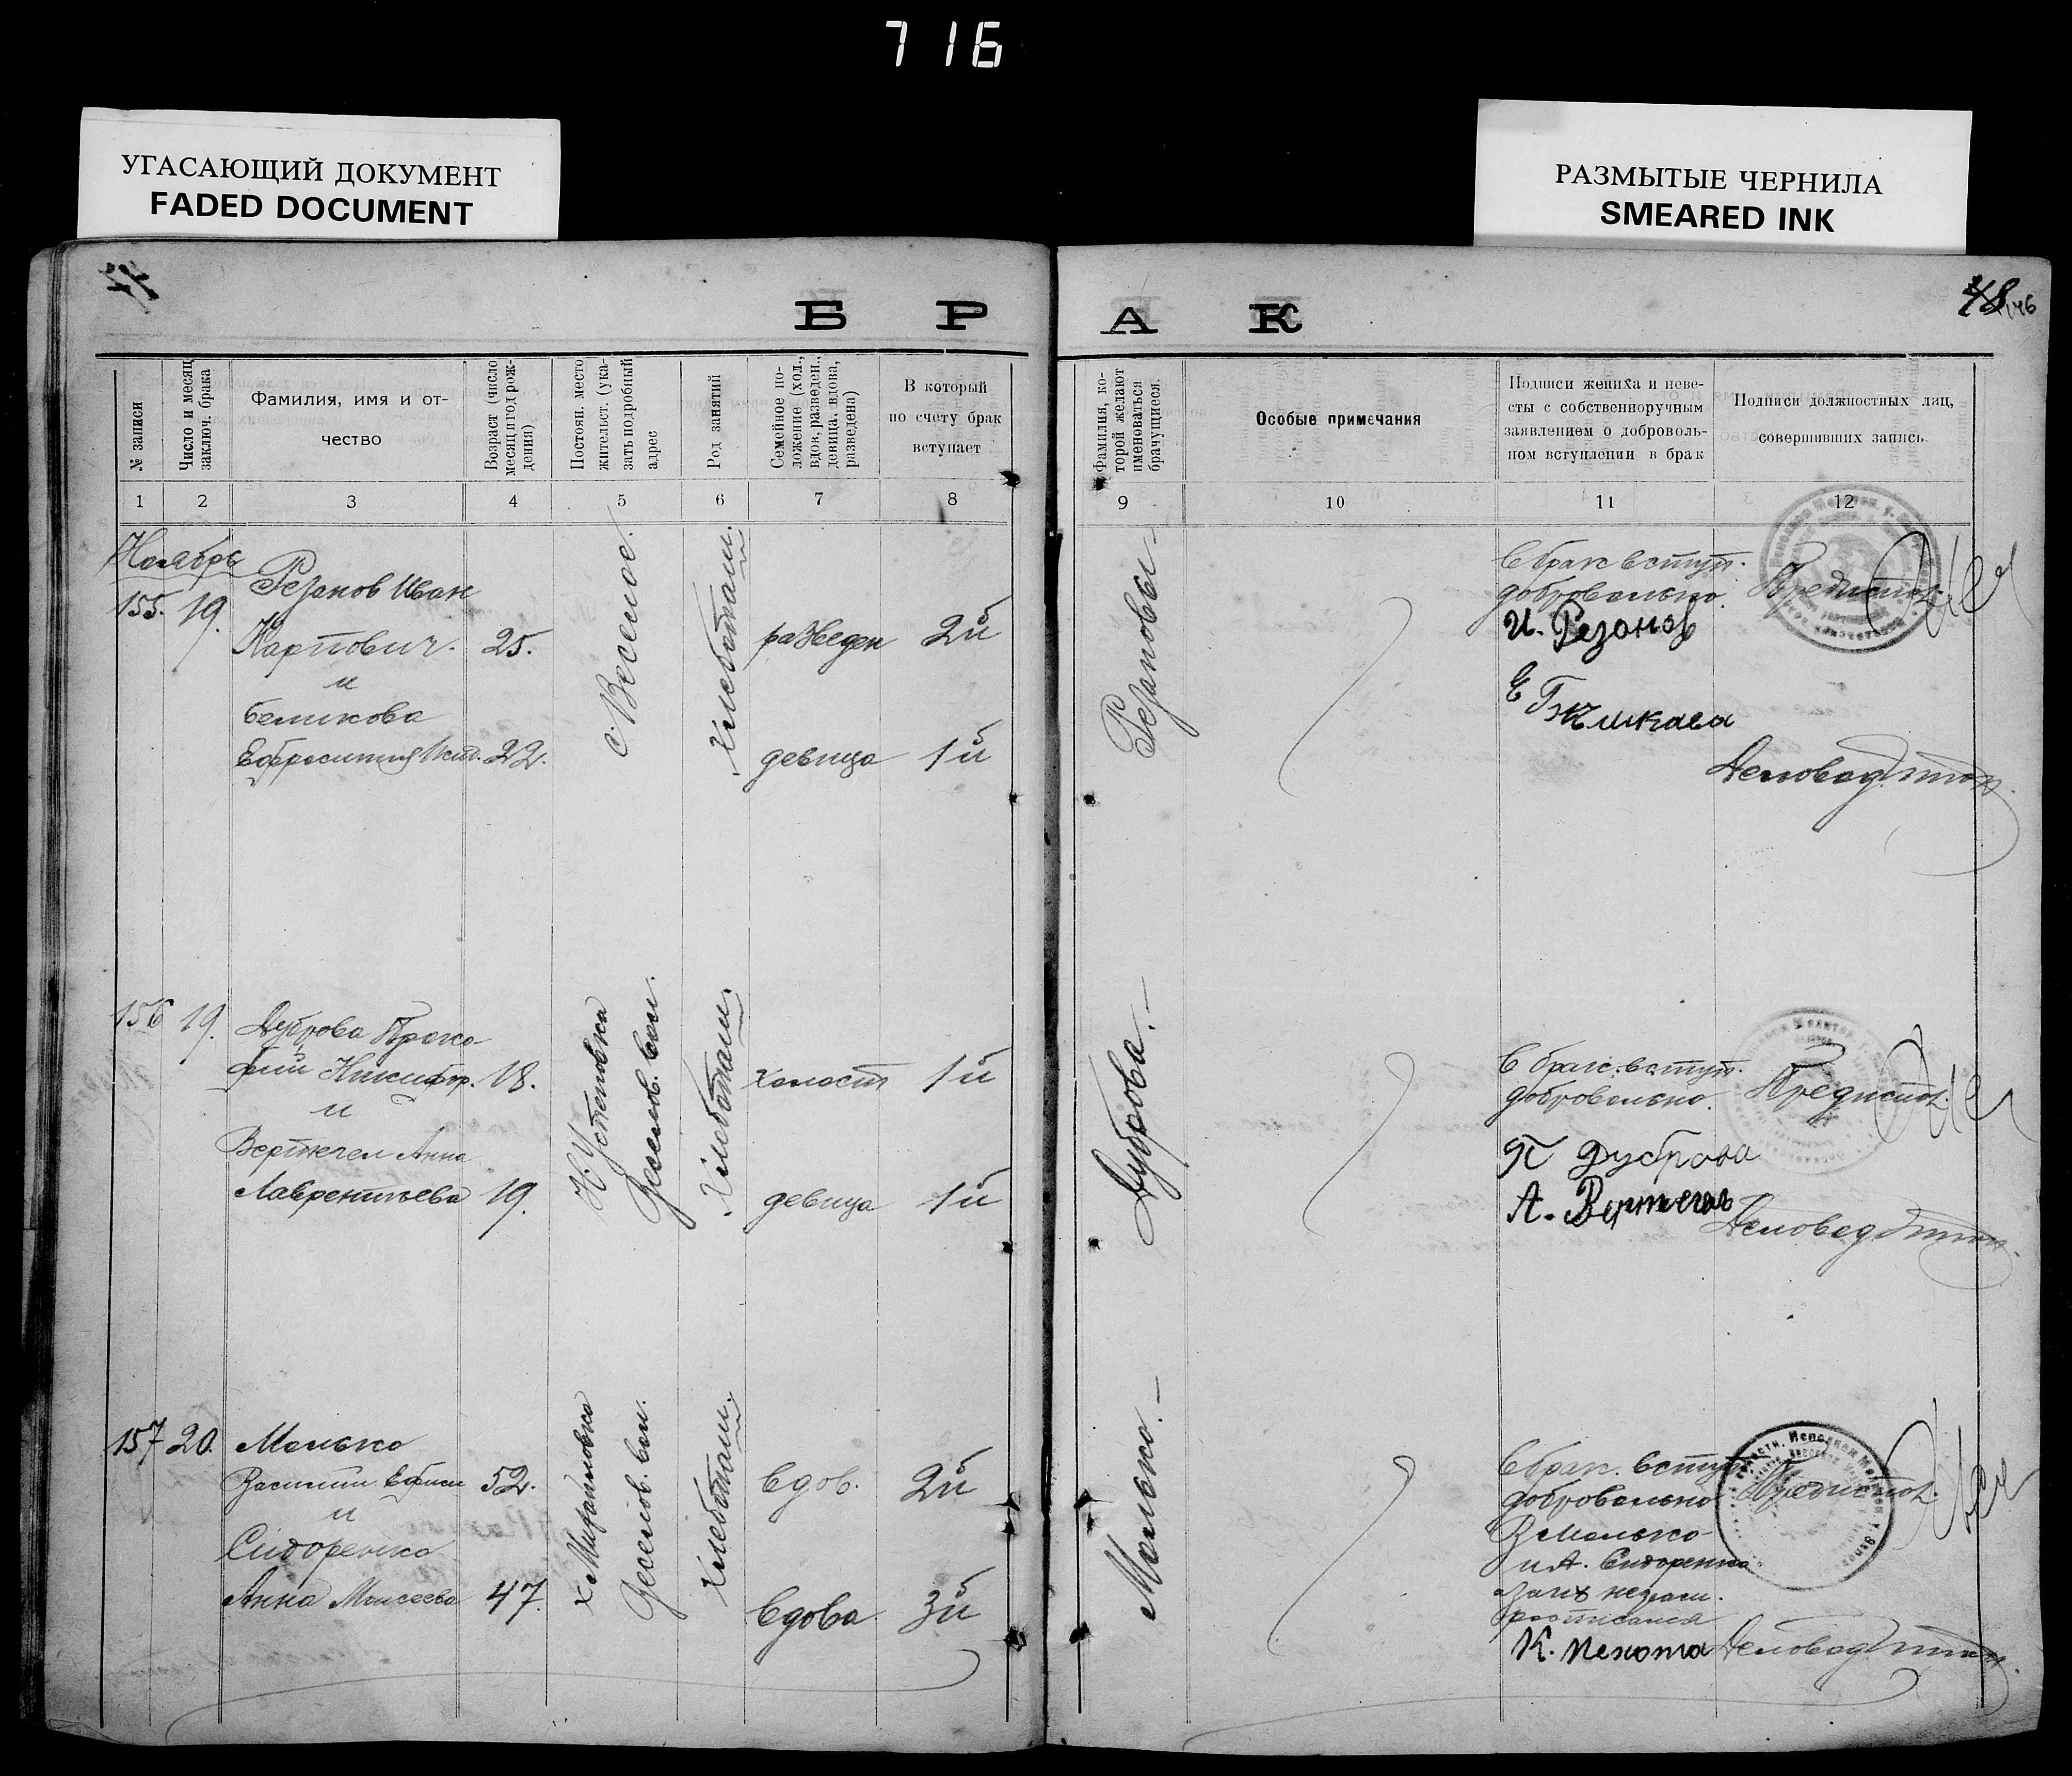 716
УГАСАЮЩИЙ ДОКУМЕНТ
FADED DOCUMENT
РАЗМЫТЫЕ ЧЕРНИЛА
SMEARED INK
48
146
Б Р А К
№ записи
Число и месяц
заключ. брака
Фамилия, имя и от-
чество
Возраст (число
месяц и год рож-
дения)
Постоян. место
жительст. (ука-
зать подробный
адрес
Род занятий
Семейное по-
ложение (хол.,
вдов, разведен.,
девица, вдова,
разведена)
В который
по счету брак
вступает
Фамилия, ко-
торой желают
именоваться
брачущиеся.
Особые примечания
Подписи жениха и неве-
сты с собственноручным
заявлением о доброволь-
ном вступлении в брак
Подписи должностных лиц,
совершивших запись.
1 2 3 4 5 6 7 8 9 10 11 12
Ноябрь
155. 19.
Резанов Иван
Карпович. 25.
и
Беликова
22.
с. Веселое.
Хлебопаш.
разведен 2й
девица 1й
Резановы
В брак вступ.
добровольно.
И. Резанов
Е
Предисполк.
Деловод
156 19.
Дуброва Проко-
фий Никифор. 18.
и
Вертегел Анна
Лаврентьева 19.
Н. Успеновка
Веселов. вол.
Хлебопаш.
холост 1й
девица 1й
Дуброва.
В брак вступ.
добровольно.
П Дуброва
А. Вертегел
Предисполк.
Деловод
157 20.
Малько
Василий Ефим 52.
и
Сидоренко
Анна Моисеева 47.
х. Михайловка
Веселов. вол.
Хлебопаш.
вдов. 2й
вдова 3й
Малько.
В брак. вступ.
добровольно
В Малько
и А. Сидоренко
за их неграм.
расписался
К. Пехота
Предисполк.
Деловод